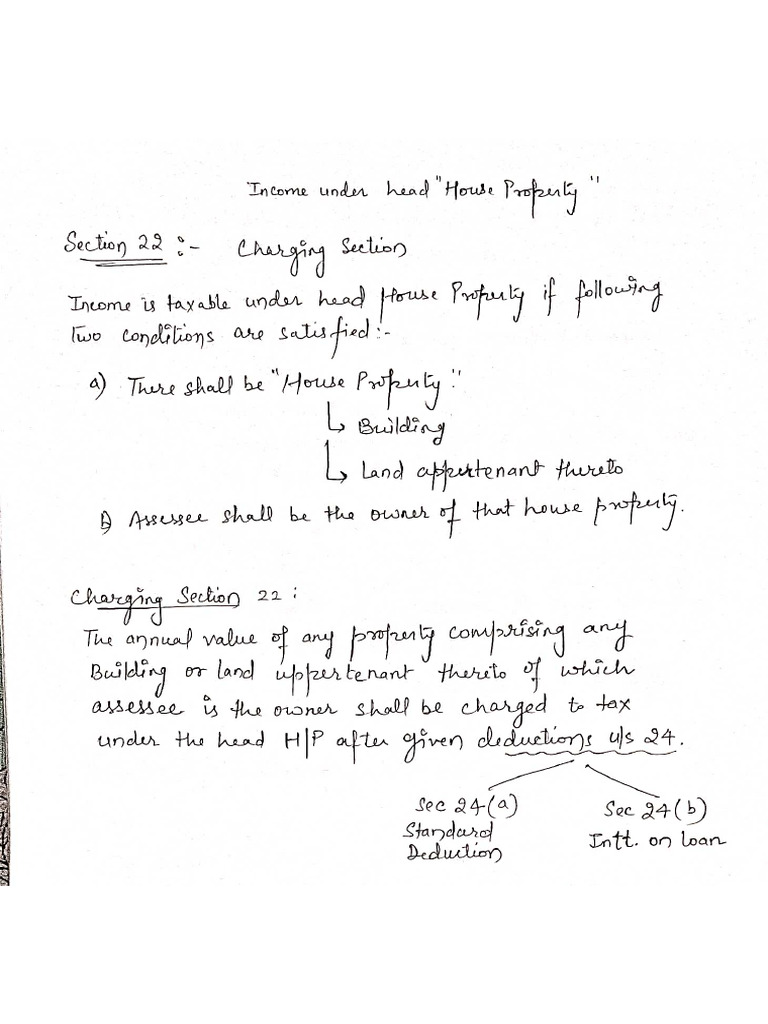 Income under head "House Property"
Section 22 :- Charging Section
Income is taxable under head House Property if following
two conditions are satisfied:-
a) There shall be "House Property".
↳ Building
↳ Land appertenant thereto
b) Assessee shall be the owner of that house property.
Charging Section 22 :
The annual value of any property comprising any
Building or land uppertenant thereto of which
assessee is the owner shall be charged to tax
under the head H/P after given deductions u/s 24.
Sec 24(a) Sec 24(b)
Standard Intt. on loan
Deduction